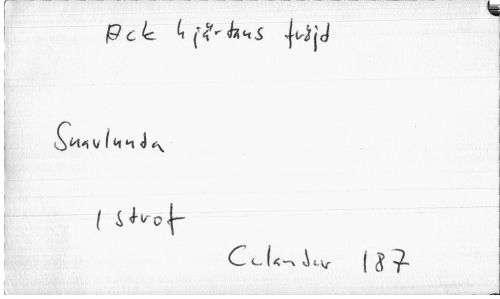 Ack hjärtans fröjd
Snavlunda
1 strof
Celander 187